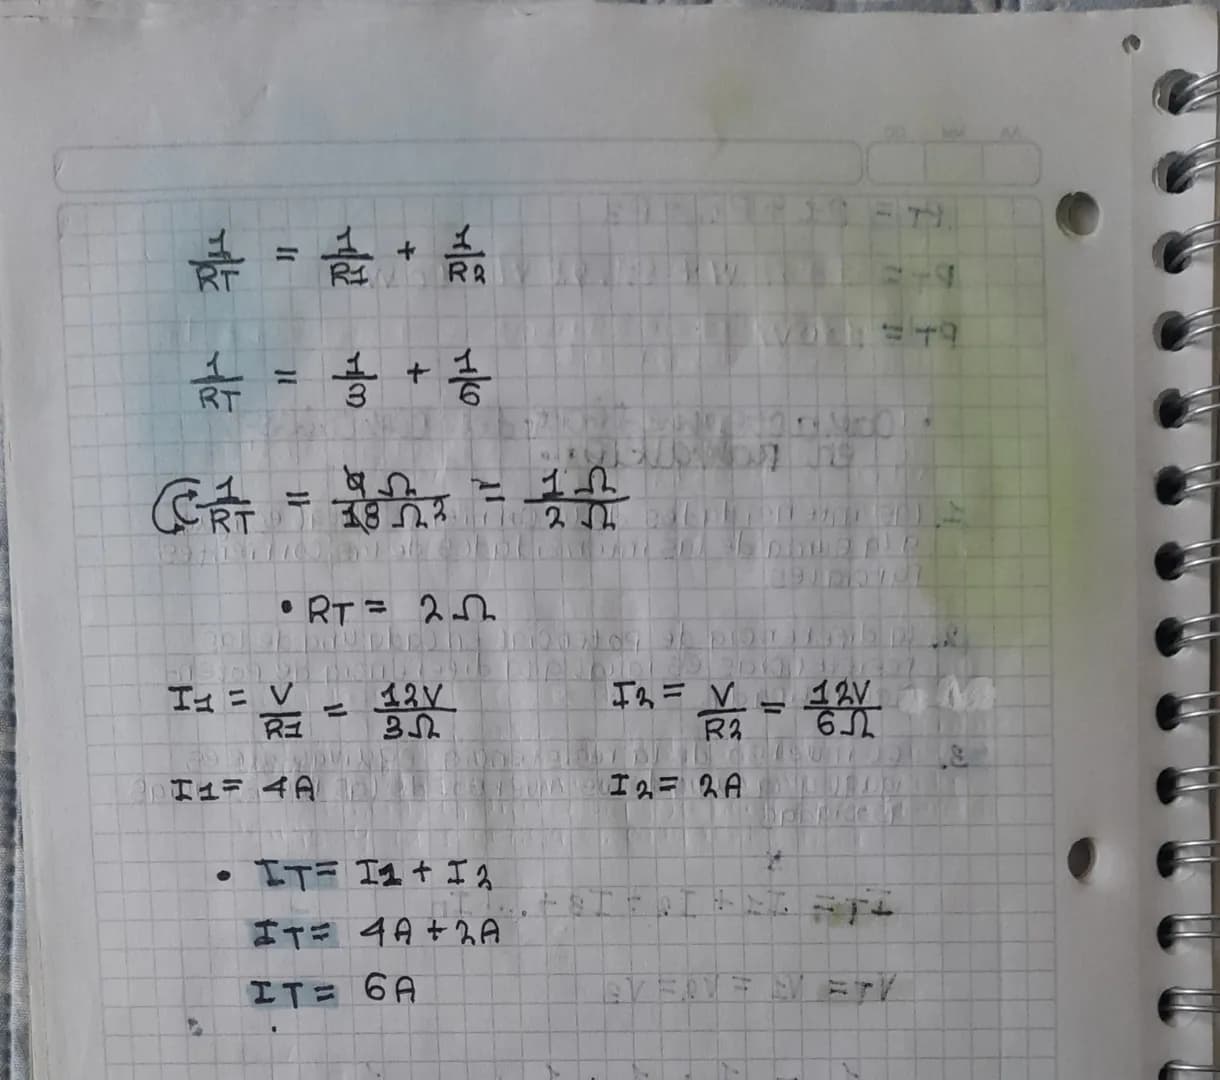 1/RT = 1/R1 + 1/R2
1/RT = 1/3 + 1/6
1/RT = 9Ω/18Ω² = 1Ω/2Ω
• RT = 2Ω
I1 = V/R1 = 12V/3Ω I2 = V/R2 = 12V/6Ω
I1 = 4A I2 = 2A
• IT = I1 + I2
IT = 4A + 2A
IT = 6A